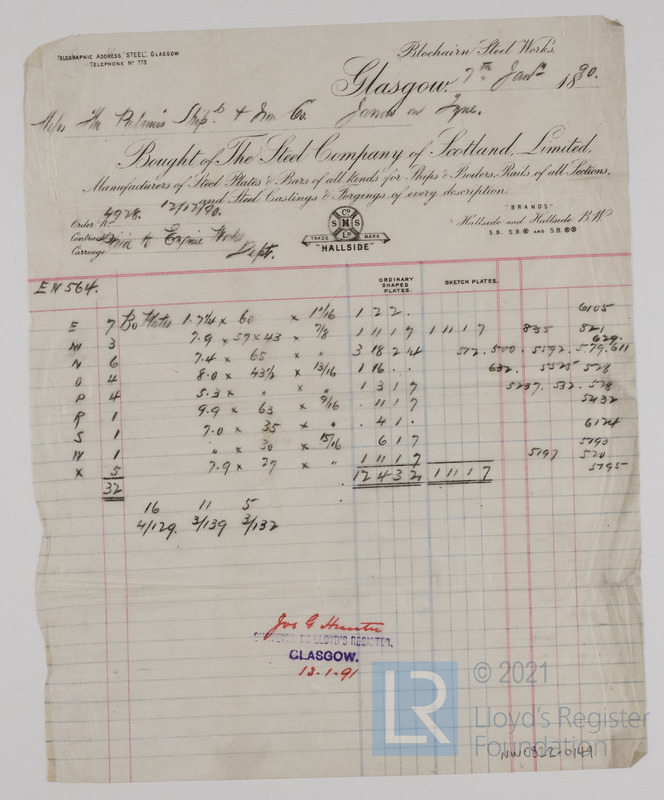 TELEGRAPHIC ADDRESS, "STEEL," GLASGOW
TELEPHONE No 773
Blochairn Steel Works,
Glasgow, 7th Jany 1890.
The Palmers Ship. & Iron Co. Jarrow on Tyne.
Bought of The Steel Company of Scotland, Limited,
Manufacturers of Steel Plates & Bars of all kinds for Ships & Boilers, Rails of all Sections,
and Steel Castings & Forgings of every description.
Order No 4928. 12/12/90.
Contract
Carriage
Engine Works Dept.
Co
S M S
Ld
TRADE MARK
"HALLSIDE"
"BRANDS"
Hallside and Hallside B.W
S.B. S.B.® AND S.B.®®
EN 564.
ORDINARY SHAPED PLATES.
SKETCH PLATES.
E 7 Bo Plates 1.7¼ x 60 x 1 1/16 1 2 2 . 6105
M 3 7.9 x 57 x 43 x 7/8 1 11 17 1 11 17 835 821
629.
N 6 7.4 x 65 x " 3 18 2 14 512. 500. 5592. 579. 611
O 4 8.0 x 43½ x 13/16 1 16 . . 632. 5525 528
P 4 5.3 x " x " 1 3 17 5237. 532. 578
R 1 9.9 x 63 x 9/16 . 11 17 5432
S 1 7.0 x 35 x " . 4 1 . 6124
W 1 " x 30 x 15/16 6 17 5193
X 5 7.9 x 27 x " 1 11 17 5197 520
5795
32 12 4 3 2 1 11 17
16 11 5
4/129. 3/139 3/132
Jos G Hunter
SURVEYOR TO LLOYD'S REGISTER,
GLASGOW.
13.1.91
LR
© 2021
Lloyd's Register
Foundation
NW0822-0149